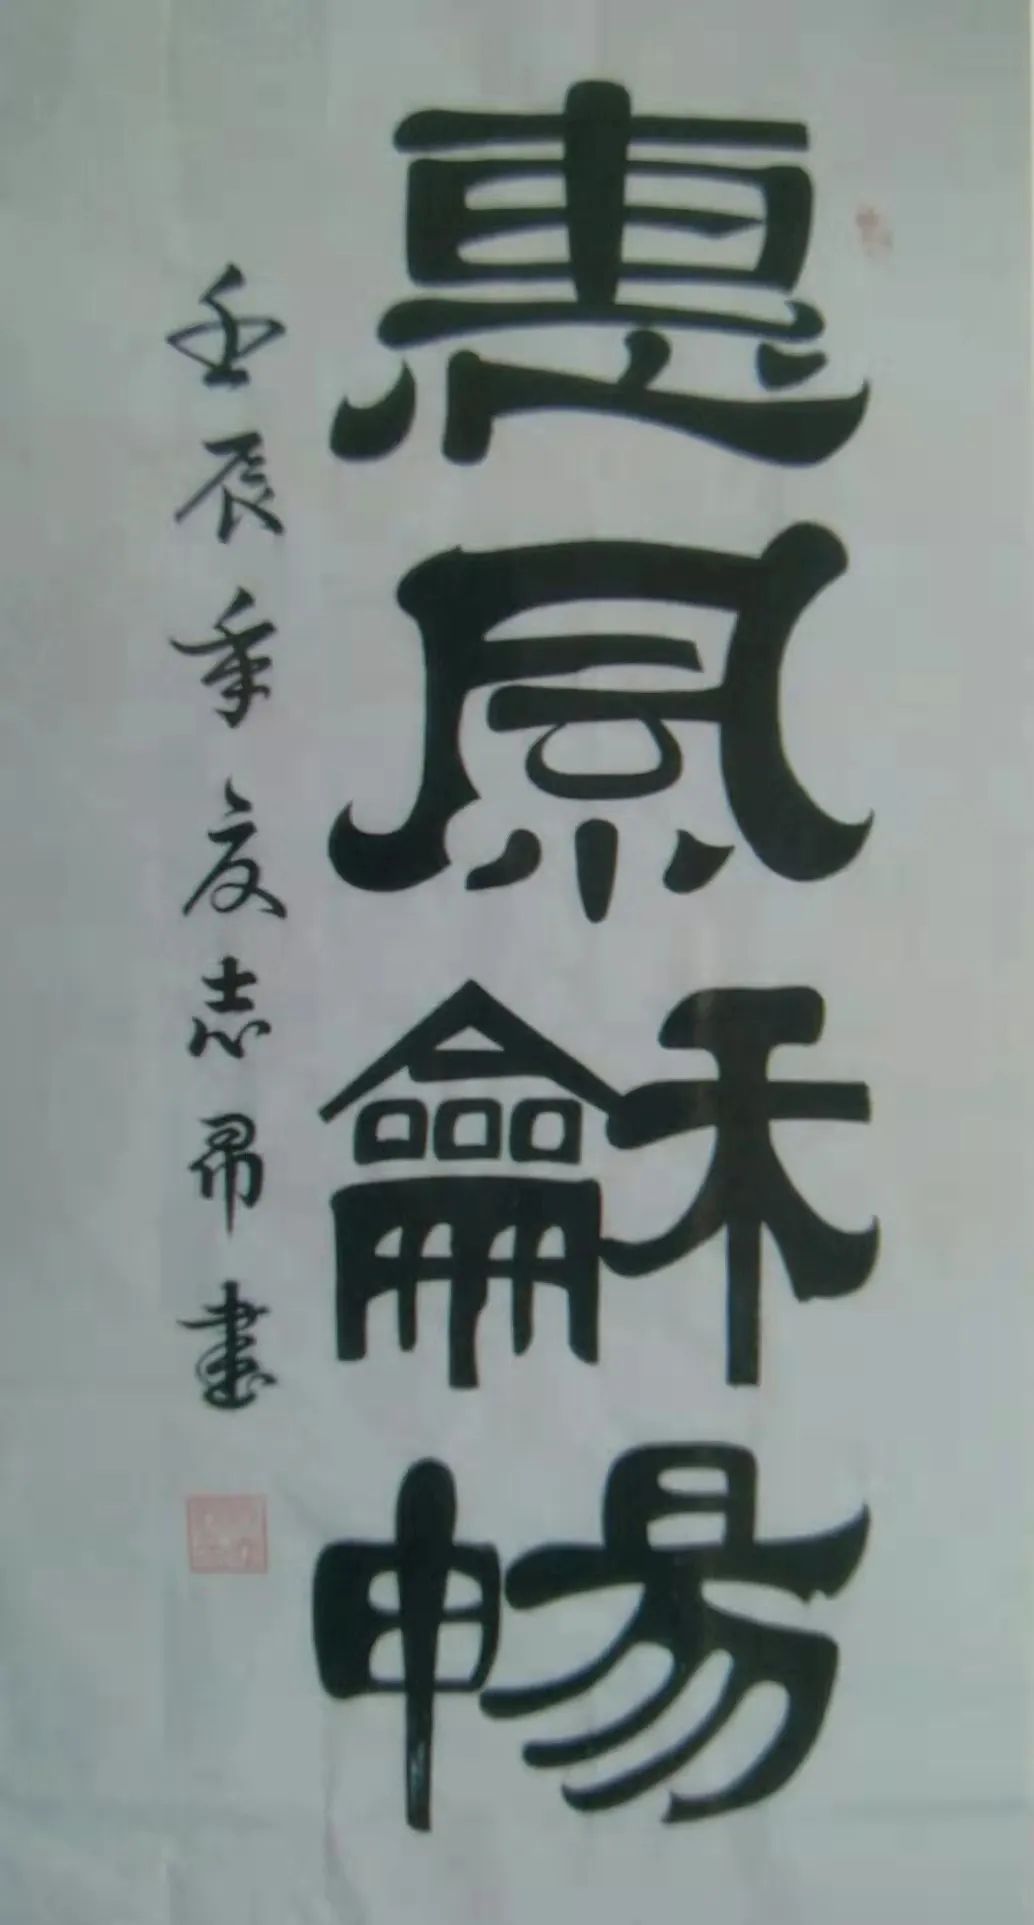 惠風龢暢
壬辰年夏志昂書